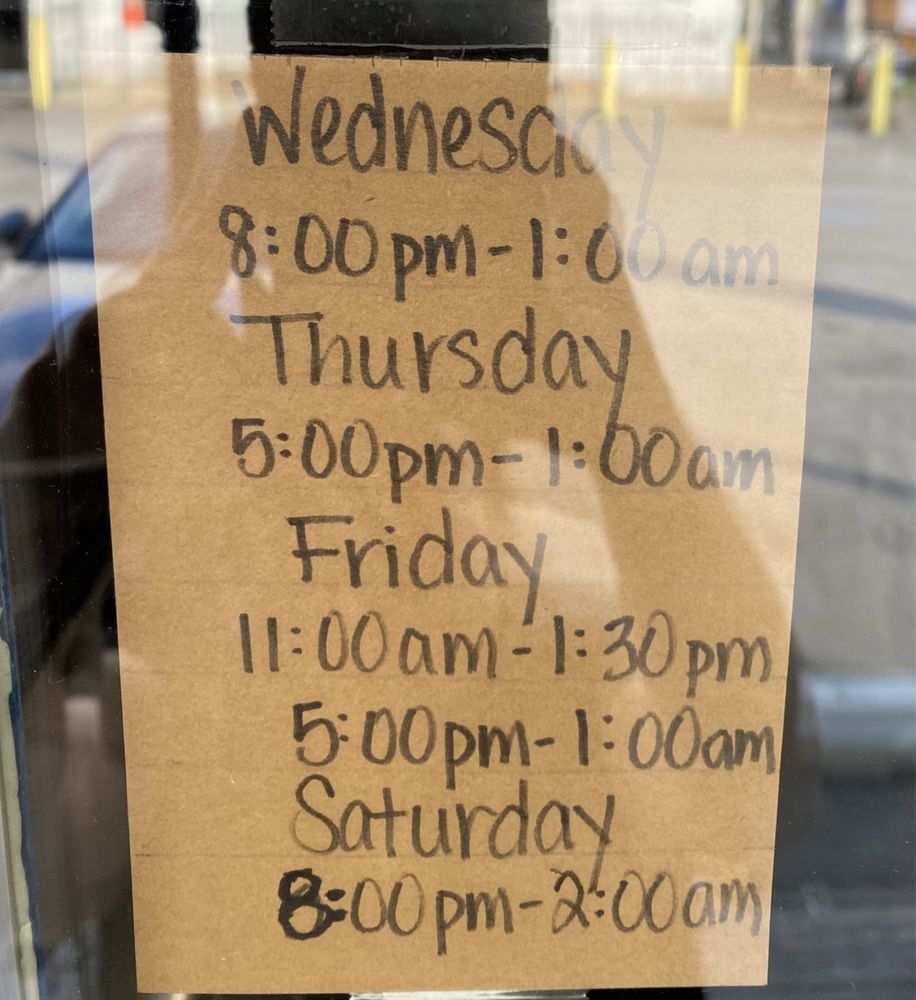 Wednesday
8:00pm-1:00am
Thursday
5:00pm-1:00am
Friday
11:00am-1:30pm
5:00pm-1:00am
Saturday
8:00pm-2:00am